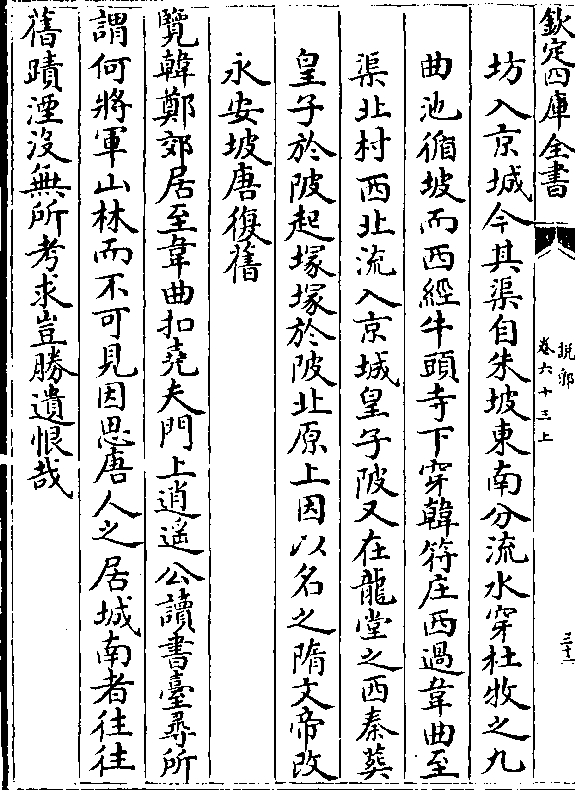 欽定四庫全書
說郛
卷六十三上
三十一
坊入京城今其渠自朱坡東南分流水穿杜牧之九
曲池循坡而西經牛頭寺下穿韓符庄西過韋曲至
渠北村西北流入京城皇子陂又在龍堂之西秦葬
皇子於陂起塚塚於陂北原上因以名之隋文帝改
永安坡唐復舊
覽韓鄭郊居至韋曲扣堯夫門上逍遥公讀書臺尋所
謂何將軍山林而不可見因思唐人之居城南者往往
舊蹟湮没無所考求豈勝遺恨哉